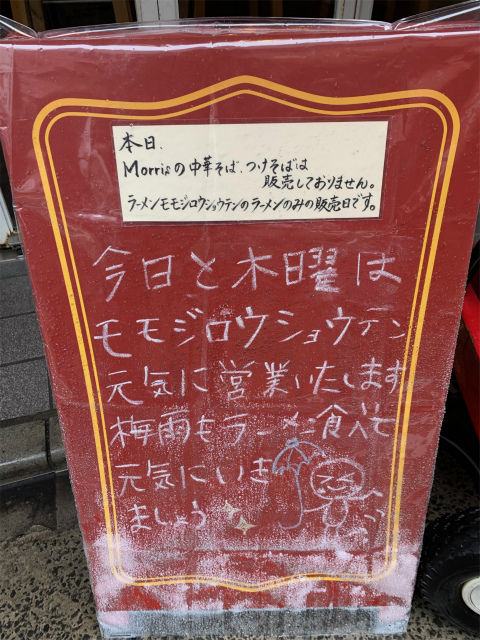 本日、
Morrisの中華そば、つけそばは
販売しておりません。
ラーメンモモジロウショウテンのラーメンのみの販売日です。
今日と木曜は
モモジロウショウテン
元気に営業いたします
梅雨もラーメン食べて
元気にいき
ましょう